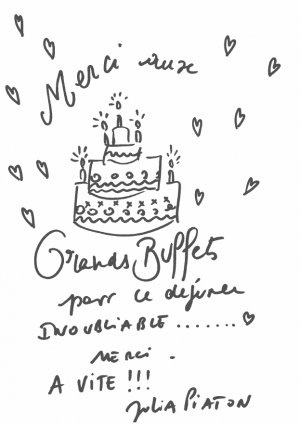 Merci aux
Grands Buffets
pour ce déjeuner
INOUBLIABLE .......
MERCI .
A VITE !!!
Julia PIATON